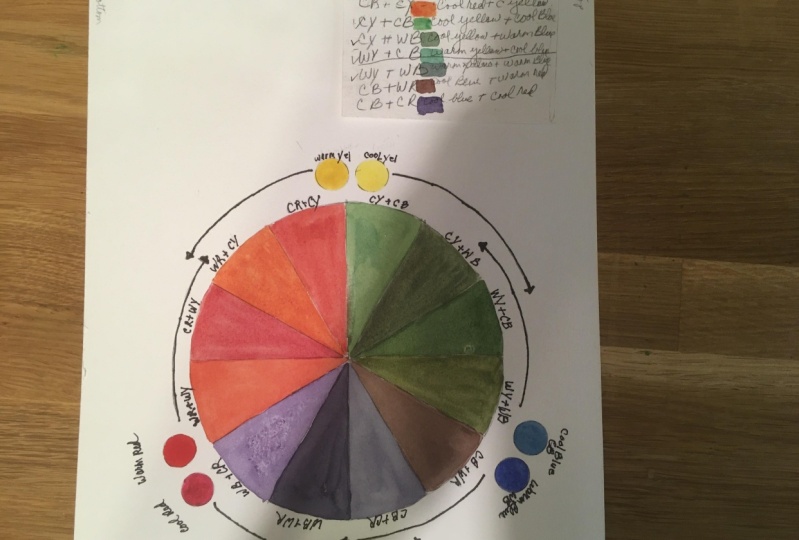 CR + CY Cool red + C yellow
CY + CB Cool yellow + cool Blue
CY + WB Cool yellow + Warm Blue
WY + CB Warm yellow + cool blue
WY + WB yellow + Warm Blue
CB + WR Blue + Warm red
CB + CR blue + cool red
warm yel
cool yel
CR+CY
CY+CB
WR+CY
CY+WB
CR+WY
WY+CB
WR+WY
WY+WB
WB+CR
CB+WR
WB+WR
CB+CR
Warm Red
Cool Red
Cool Blue
CB
Warm Blue
WB